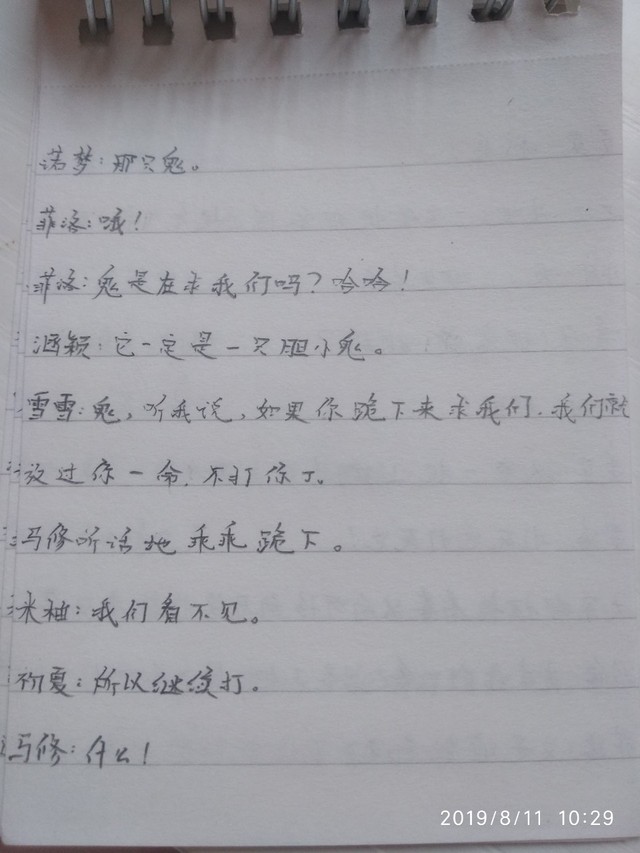 诺梦：那只鬼。
菲洛：哦！
菲洛：鬼是在求我们吗？哈哈！
涵颖：它一定是一只胆小鬼。
雪雪：鬼，听我说，如果你跪下来求我们，我们就
放过你一命，不打你了。
马修听话地乖乖跪下。
米袖：我们看不见。
初夏：所以继续打。
马修：什么！
2019/8/11 10:29